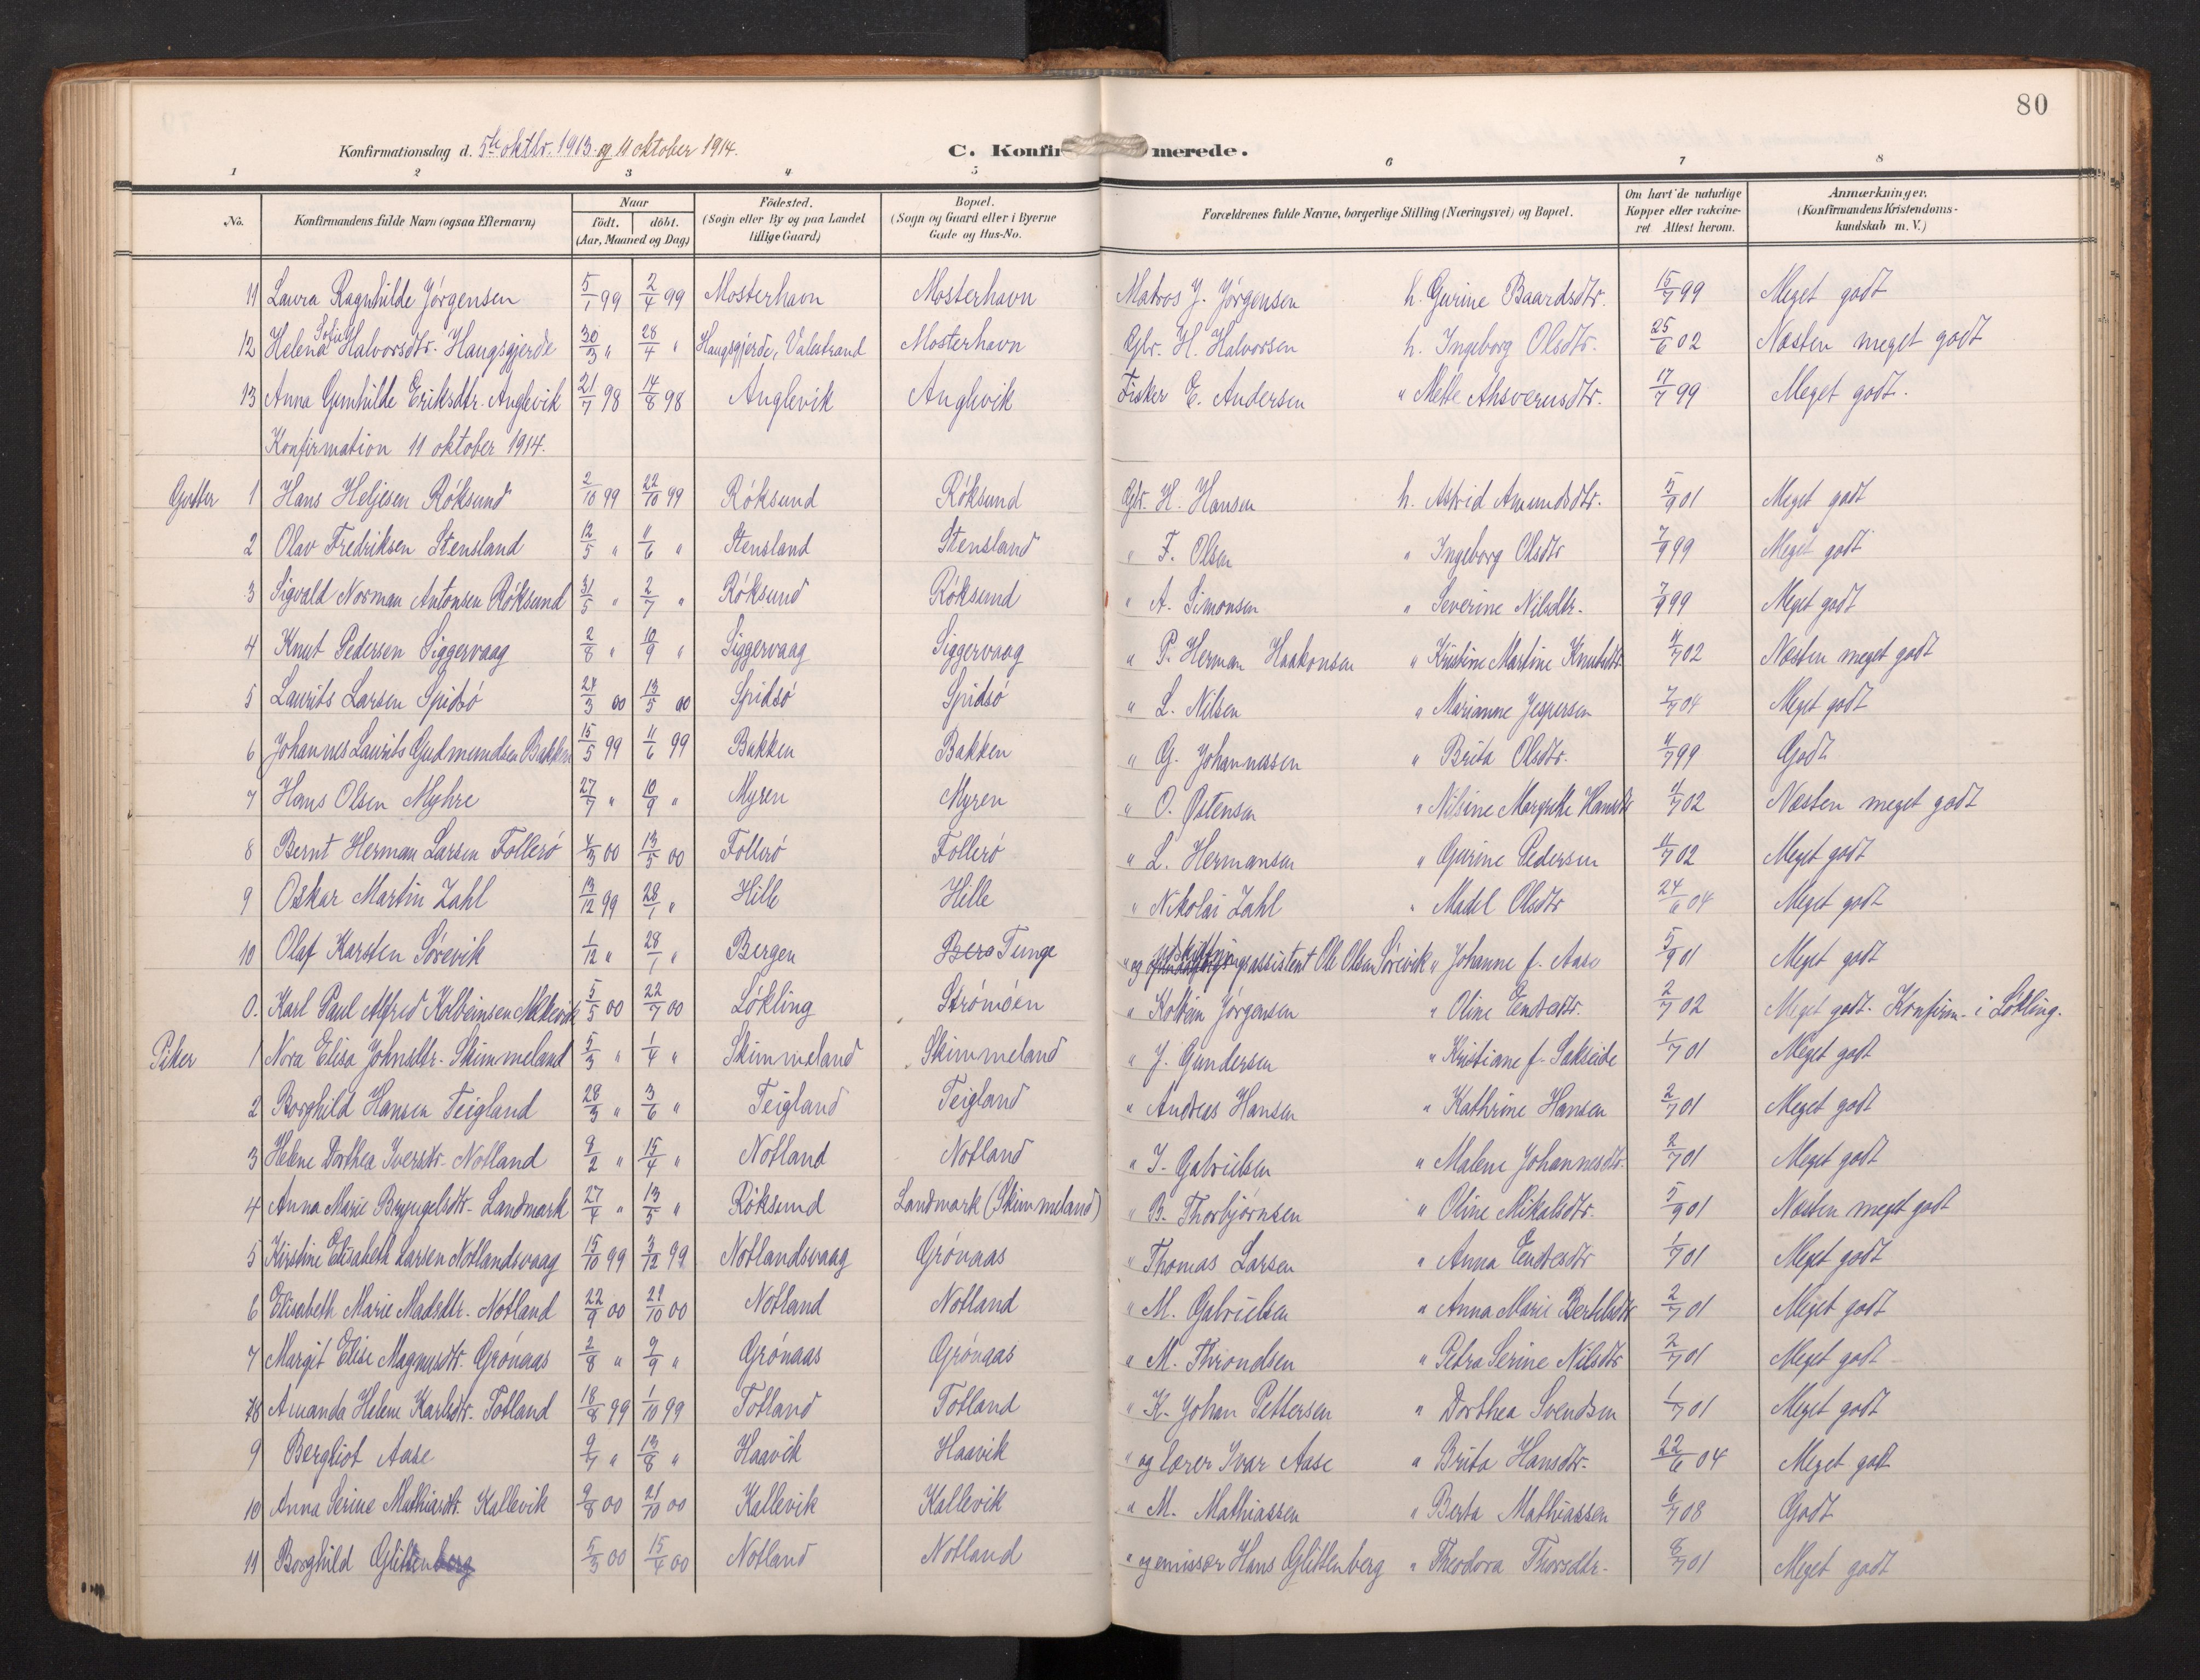 80
Konfirmationsdag d. 5te oktbr. 1913 og 11 oktober 1914.
C. Konfirmerede.
1 2 3 4 5 6 7 8
No. Konfirmandens fulde Navn (ogsaa Efternavn) Naar födt. döbt. (Aar, Maaned og Dag) Födested. (Sogn eller By og paa Landet tillige Gaard) Bopæl. (Sogn og Gaard eller i Byerne Gade og Hus-No. Forældrenes fulde Navne, borgerlige Stilling (Næringsvei) og Bopæl. Om havt de naturlige Kopper eller vakcineret. Attest herom. Anmærkninger. (Konfirmandens Kristendomskundskab m. V.)
11 Laura Ragnhilde Jörgensen 5/1 99 2/4 99 Mosterhavn Mosterhavn Matros J. Jörgensen h. Gurine Baardsdtr. 15/7 99 Meget godt
12 Helena Sofie Halvorsdtr. Haugsgjerde 30/3 " 28/4 " Haugsgjerde, Valestrand Mosterhavn Gbr. H. Halvorsen h. Ingeborg Olsdtr. 25/6 02 Næsten meget godt
13 Anna Gunhilde Eriksdtr. Anglevik 21/7 98 14/8 98 Anglevik Anglevik Fisker E. Andersen " Mette Ahsverusdtr. 17/7 99 Meget godt.
Konfirmation 11 oktober 1914.
Gutter 1 Hans Heljesen Röksund 2/10 99 22/10 99 Röksund Röksund Gbr. H. Hansen h. Astrid Amundsdtr. 5/9 01 Meget godt
2 Olav Fredriksen Stensland 12/5 " 11/6 " Stensland Stensland " F. Olsen " Ingeborg Olsdtr 7/9 99 Meget godt
3 Sigvald Norman Antonsen Röksund 31/5 " 2/7 " Röksund Röksund " A. Simonsen " Severine Nilsdtr. 7/9 99 Meget godt
4 Knut Pedersen Siggervaag 2/8 " 10/9 " Siggervaag Siggervaag " P. Herman Haakonsen " Kristine Martine Knutsdtr 4/7 02 Næsten meget godt
5 Laurits Larsen Spidsö 24/3 00 13/5 00 Spidsö Spidsö " L. Nilsen " Marianne Jespersen 7/7 04 Meget godt
6 Johannes Laurits Gudmundsen Bakken 15/5 99 11/6 99 Bakken Bakken " G. Johannessen " Brita Olsdtr. 11/7 99 Godt
7 Hans Olsen Myhre 27/7 " 10/9 " Myren Myren " O. Østensen " Nilsine Margrethe Hansdtr 4/7 02 Næsten meget godt
8 Bernt Herman Larsen Follerö 4/3 00 13/5 00 Follerö Follerö " L. Hermansen " Gurine Pedersen 11/7 02 Meget godt
9 Oskar Martin Zahl 13/12 99 28/1 " Hille Hille " Nikolai Zahl " Madel Olsdtr 24/6 04 Meget godt
10 Olaf Karsten Sörevik 1/12 " 28/1 " Bergen Tunge assistent Ole Olsen Sörevik " Johanne f. Aase 5/9 01 Meget godt
0. Karl Paul Alfred Kolbeinsen 5/5 00 22/7 00 Lökling Strömöen " Kolbein Jörgensen " Oline Endresdtr. 2/7 02 Meget godt. Konfirm. i Lökling.
Piker 1 Nora Elisa Johnsdtr. Skimmeland 5/3 " 1/4 " Skimmeland Skimmeland " J. Gundersen " Kristiane f. Sakseide 1/7 01 Meget godt
2 Borghild Hansen Teigland 28/3 " 3/6 " Teigland Teigland " Andreas Hansen " Kathrine Hansen 2/7 01 Meget godt
3 Helene Dorthea Iversdtr. Notland 8/2 " 15/4 " Notland Notland " I. Gabrielsen " Malene Johannesdtr. 2/7 01 Meget godt
4 Anna Marie Bryngelsdtr. Landmark 27/4 " 13/5 " Röksund Landmark (Skimmeland) " B. Thorbjörnsen " Oline Mikalsdtr. 5/9 01 Næsten meget godt
5 Kirstine Elisabeth Larsen Notlandsvaag 15/10 99 3/12 99 Notlandsvaag Grönaas " Thomas Larsen " Anna Endresdtr 1/7 01 Meget godt
6 Elisabeth Marie Madsdtr. Notland 22/9 00 28/10 00 Notland Notland " M. Gabrielsen " Anna Marie Bertelsdtr 2/7 01 Meget godt
7 Margit Elise Magnusdtr. Grönaas 2/8 " 9/9 " Grönaas Grönaas " M. Throndsen " Petra Serine Nilsdtr 2/7 01 Meget godt
8 Amanda Helene Karlsdtr. Totland 18/8 99 1/10 99 Totland Totland " K. Johan Pettersen " Dorthea Svendsen 1/7 01 Meget godt
9 Bergliot Aase 9/7 " 13/8 " Haavik Haavik " og lærer Ivar Aase " Brita Hansdtr. 22/6 04 Meget godt
10 Anna Serine Mathiasdtr. Kallevik 9/8 00 21/10 00 Kallevik Kallevik " M. Mathiassen " Berta Mathiassen 6/7 08 Godt
11 Borghild Glittenberg 5/3 00 15/4 00 Notland Notland " og emissær Hans Glittenberg " Theodora Thorsdtr. 8/7 01 Meget godt